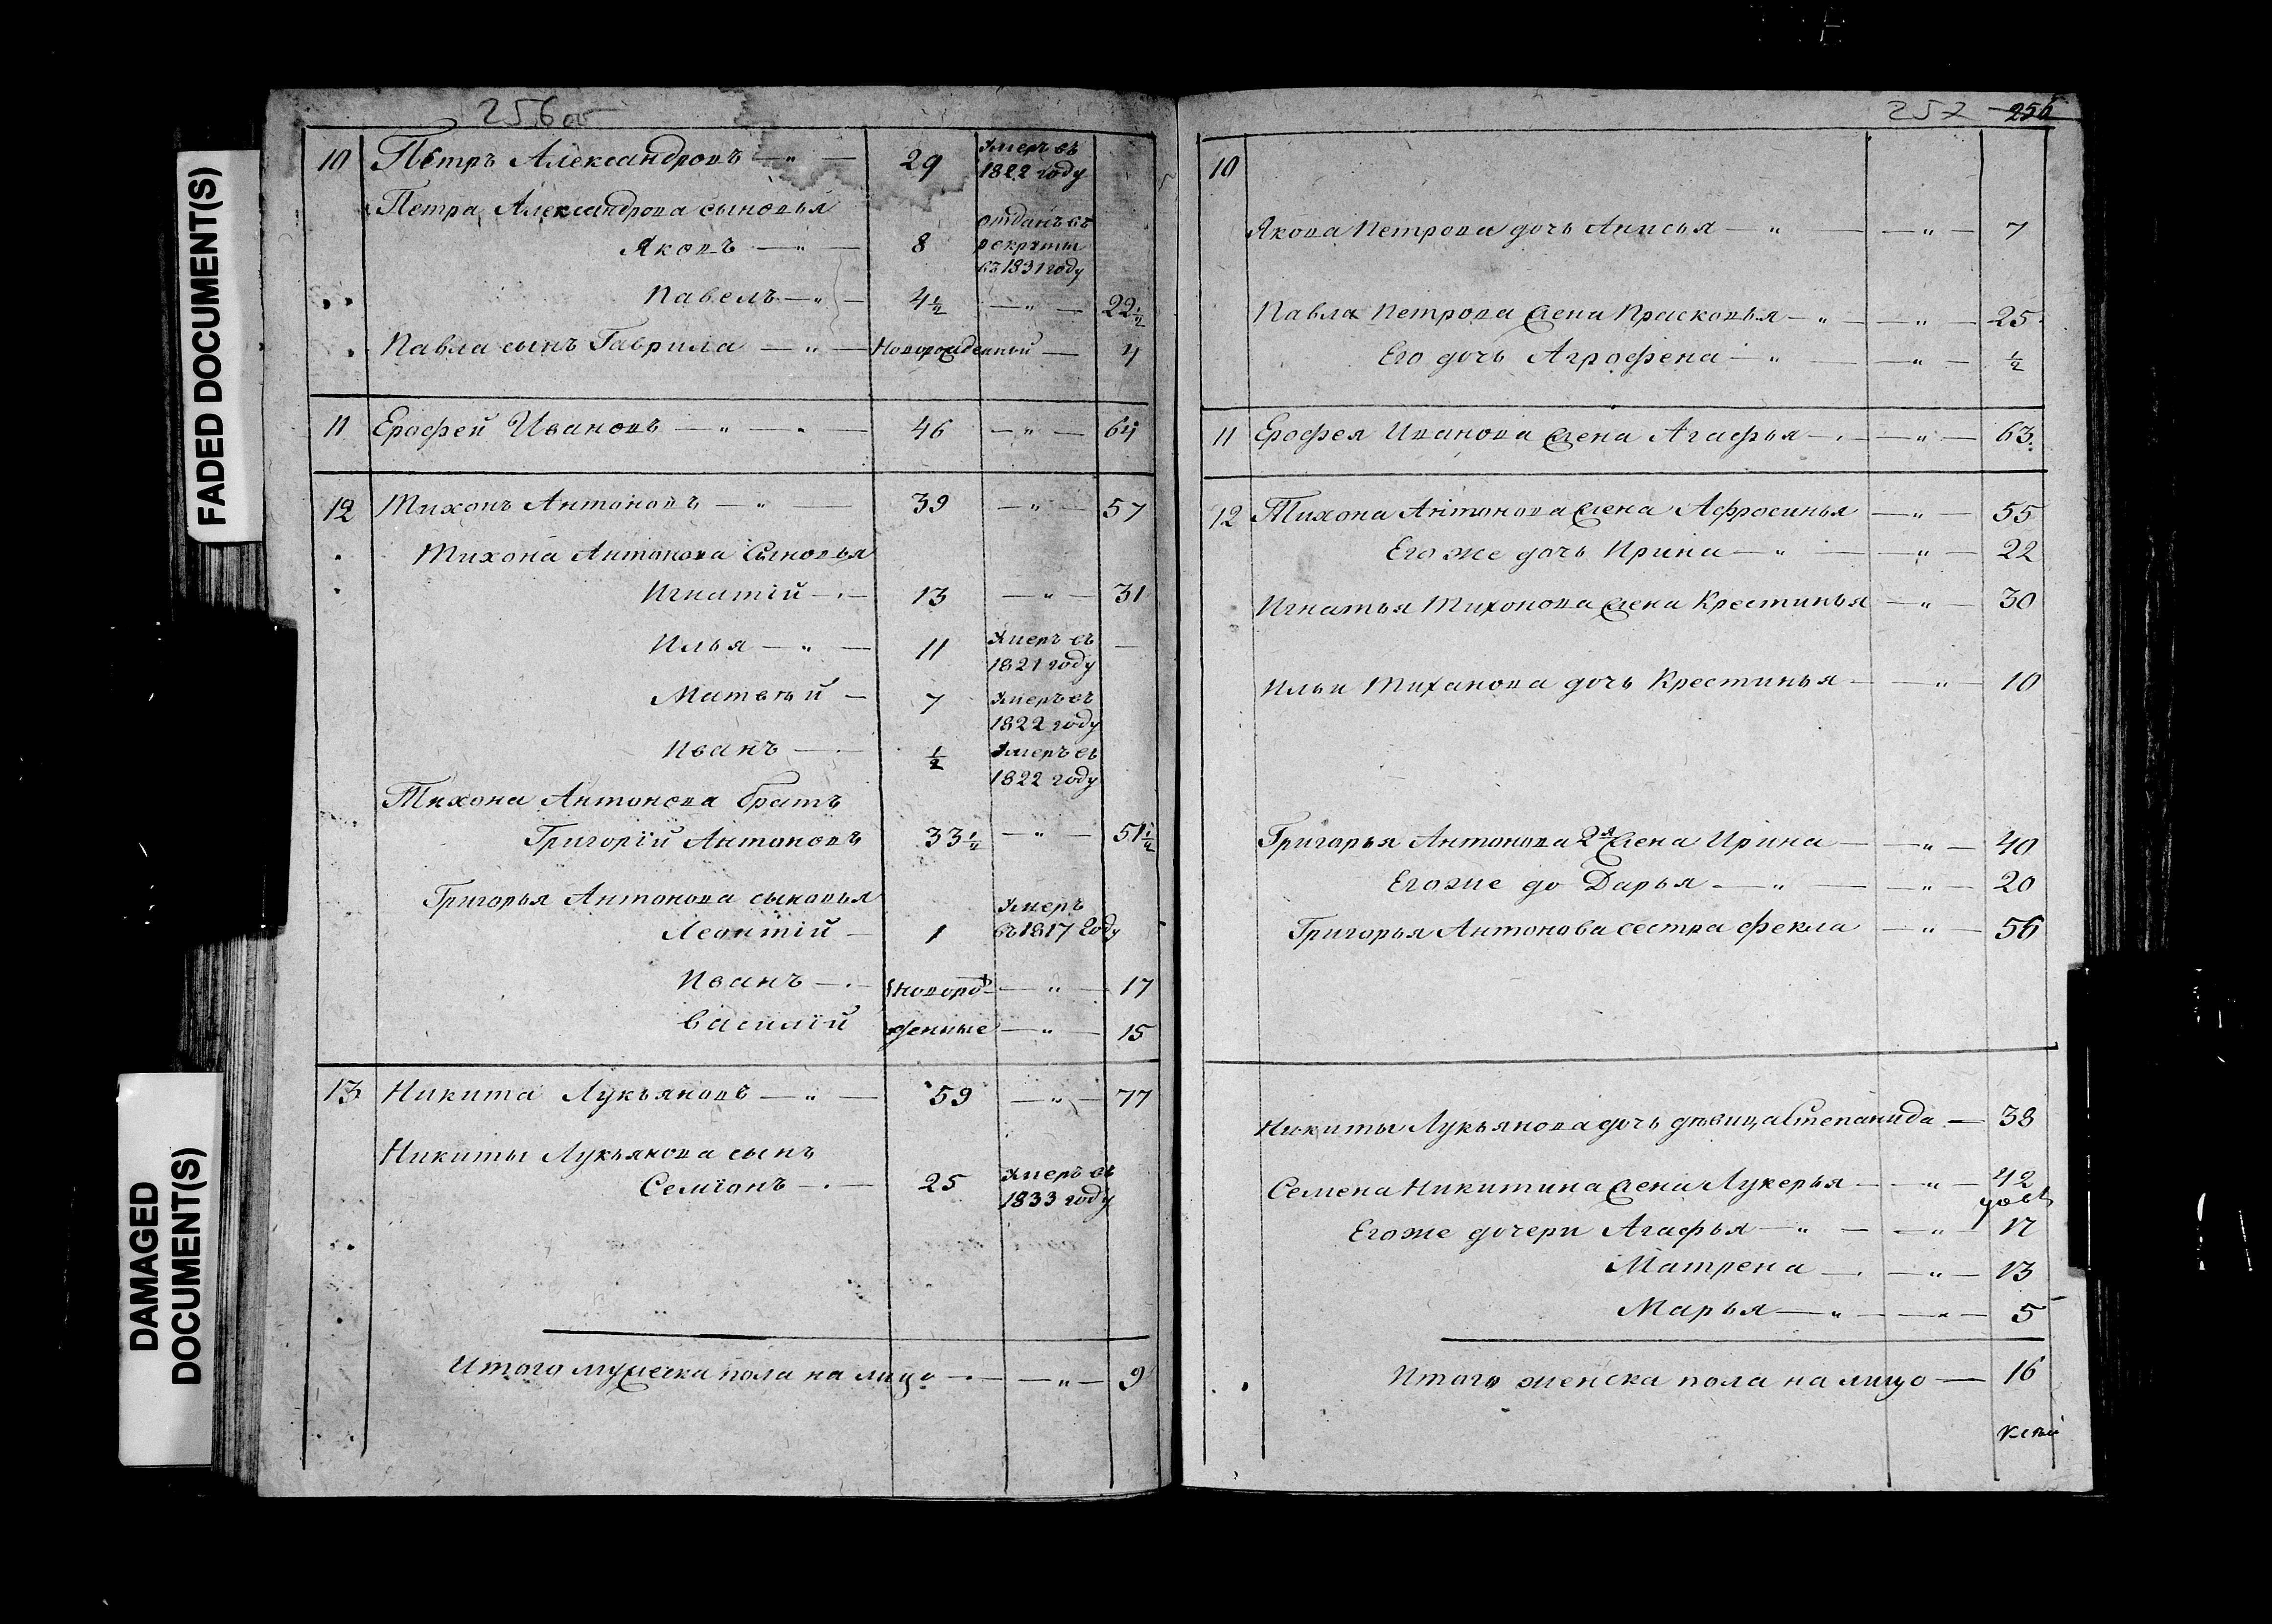 FADED DOCUMENT(S)
DAMAGED
DOCUMENT(S)
256 об
10 Петръ Александровъ — " — 29 Умеръ въ
1822 году
Петра Александрова сыновья
Яковъ — " — 8 отданъ въ
рекруты
въ 1831 году
Павелъ — " — 4½ — " — 22½
Павла сынъ Гаврила — " — Новорожденный — 4
11 Ерофей Ивановъ — " — 46 — " — 64
12 Тихонъ Антоновъ — " — 39 — " — 57
Тихона Антонова Сыновья
Игнатій — 13 — " — 31
Илья — " — 11 Умеръ въ —
1821 году
Матвѣй — 7 Умеръ въ
1822 году
Иванъ — ½ Умеръ въ
1822 году
Тихона Антонова братъ
Григорій Антоновъ 33½ — " — 51½
Григорья Антонова сыновья
Леонтій — 1 Умеръ
въ 1817 Году
Иванъ — Новорο — " — 17
Василій жденные — " — 15
13 Никита Лукьяновъ — " — 59 — " — 77
Никиты Лукьянова сынъ
Семіонъ — 25 Умеръ въ
1833 году
Итого мужеска пола на лицо — " — 9
257 256
10
Якова Петрова дочь Анисья — " — " — 7
Павла Петрова жена Прасковья — " — " — 25
Его дочь Агрофена — " — " — ½
11 Ерофея Иванова жена Агафья — " — 63
12 Тихона Антонова жена Афросинья — " — 55
Его же дочь Ирина — " — " — 22
Игнатья Тихонова жена Крестинья — " — 30
Ильи Тиханова дочь Крестинья — " — 10
Григорья Антонова 2я жена Ирина — " — 40
Егоже до Дарья — " — " — 20
Григорья Антонова сестра Фекла — " — 56
Никиты Лукьянова дочь дѣвица Степанида — 38
Семена Никитина жена Лукерья — " — 42
Егоже дочери Агафья — " — " — 17
Матрена — " — 13
Марья — " — " — 5
Итого женска пола на лицо — 16